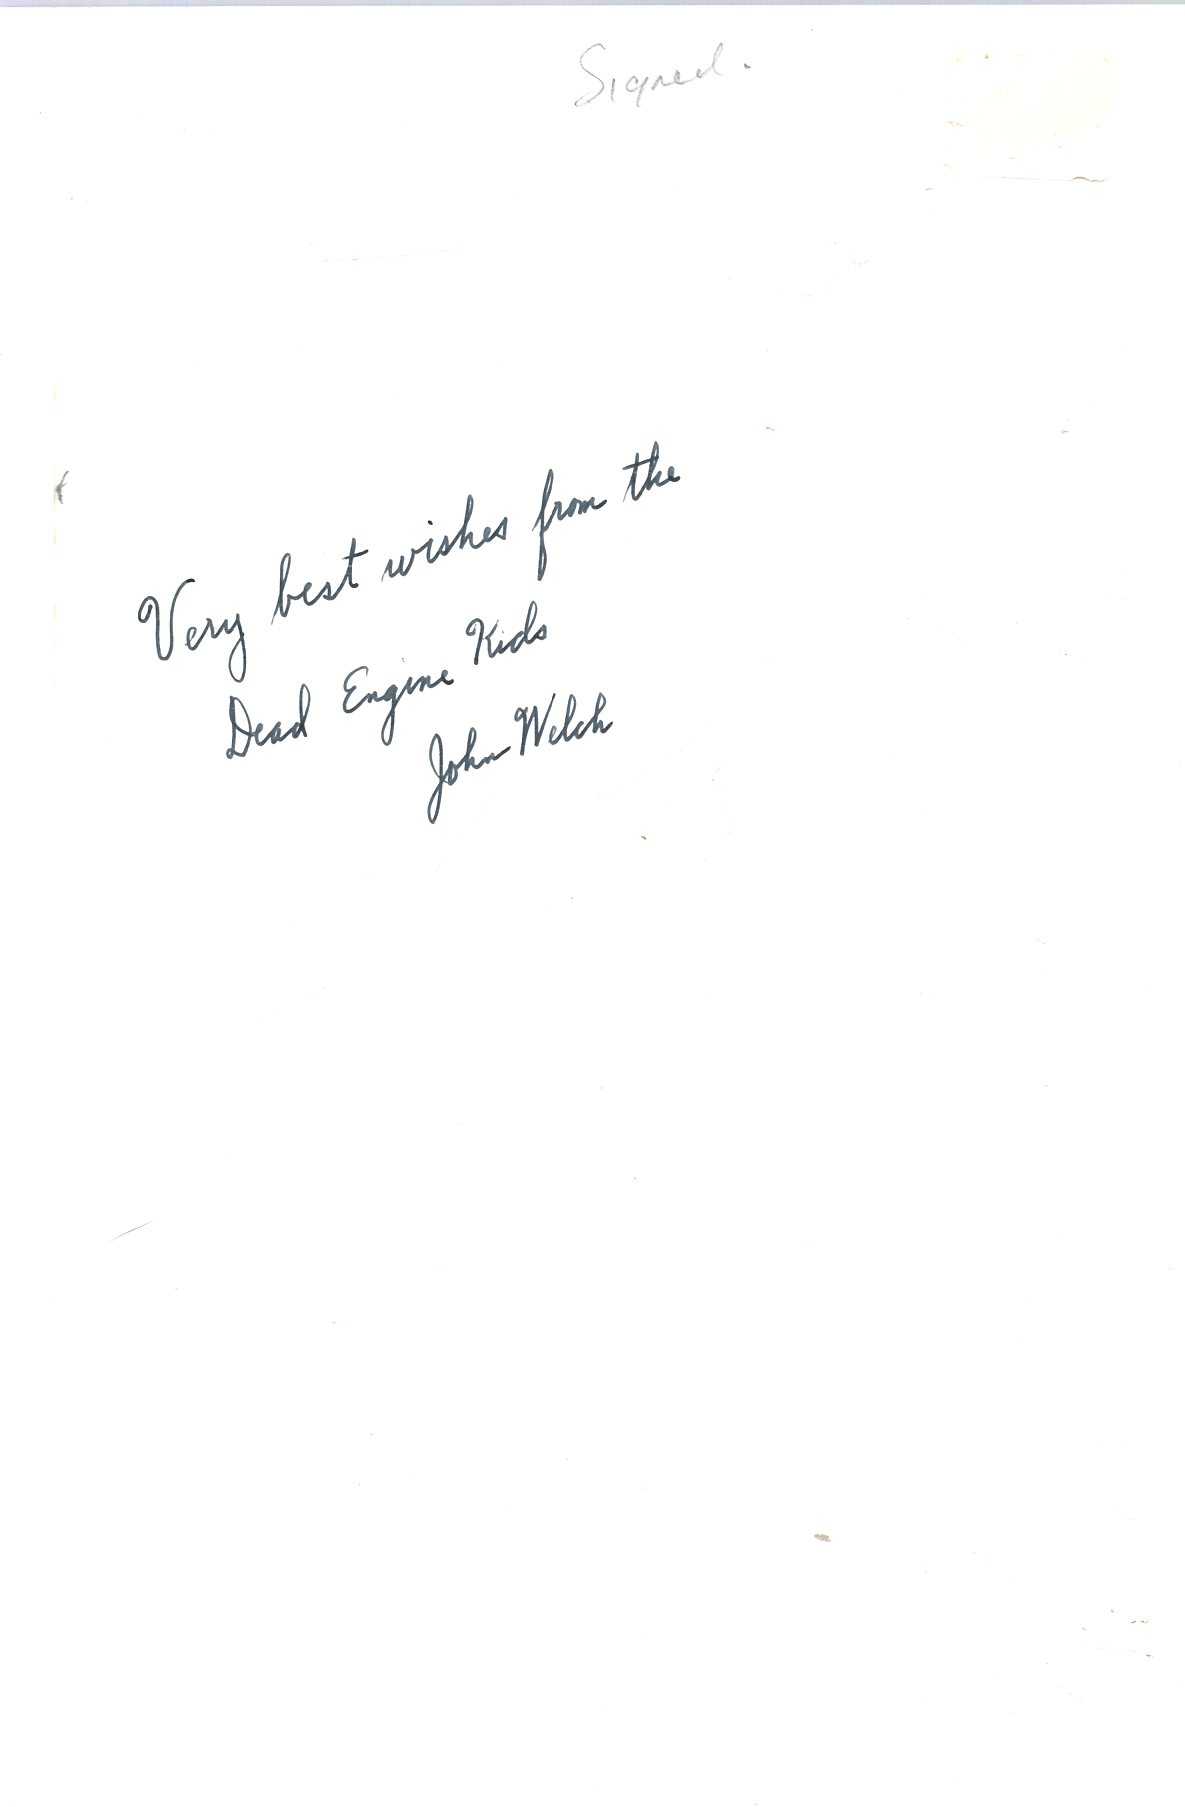 Signed.
Very best wishes from the
Dead Engine Kids
John Welch